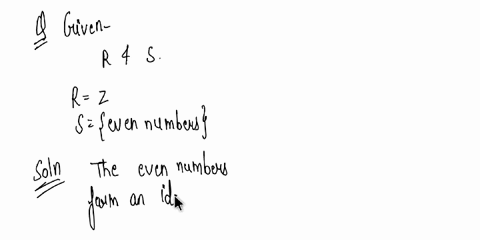 Q Given-
R & S.
R = Z
S = {even numbers}
Soln The even numbers
form an id